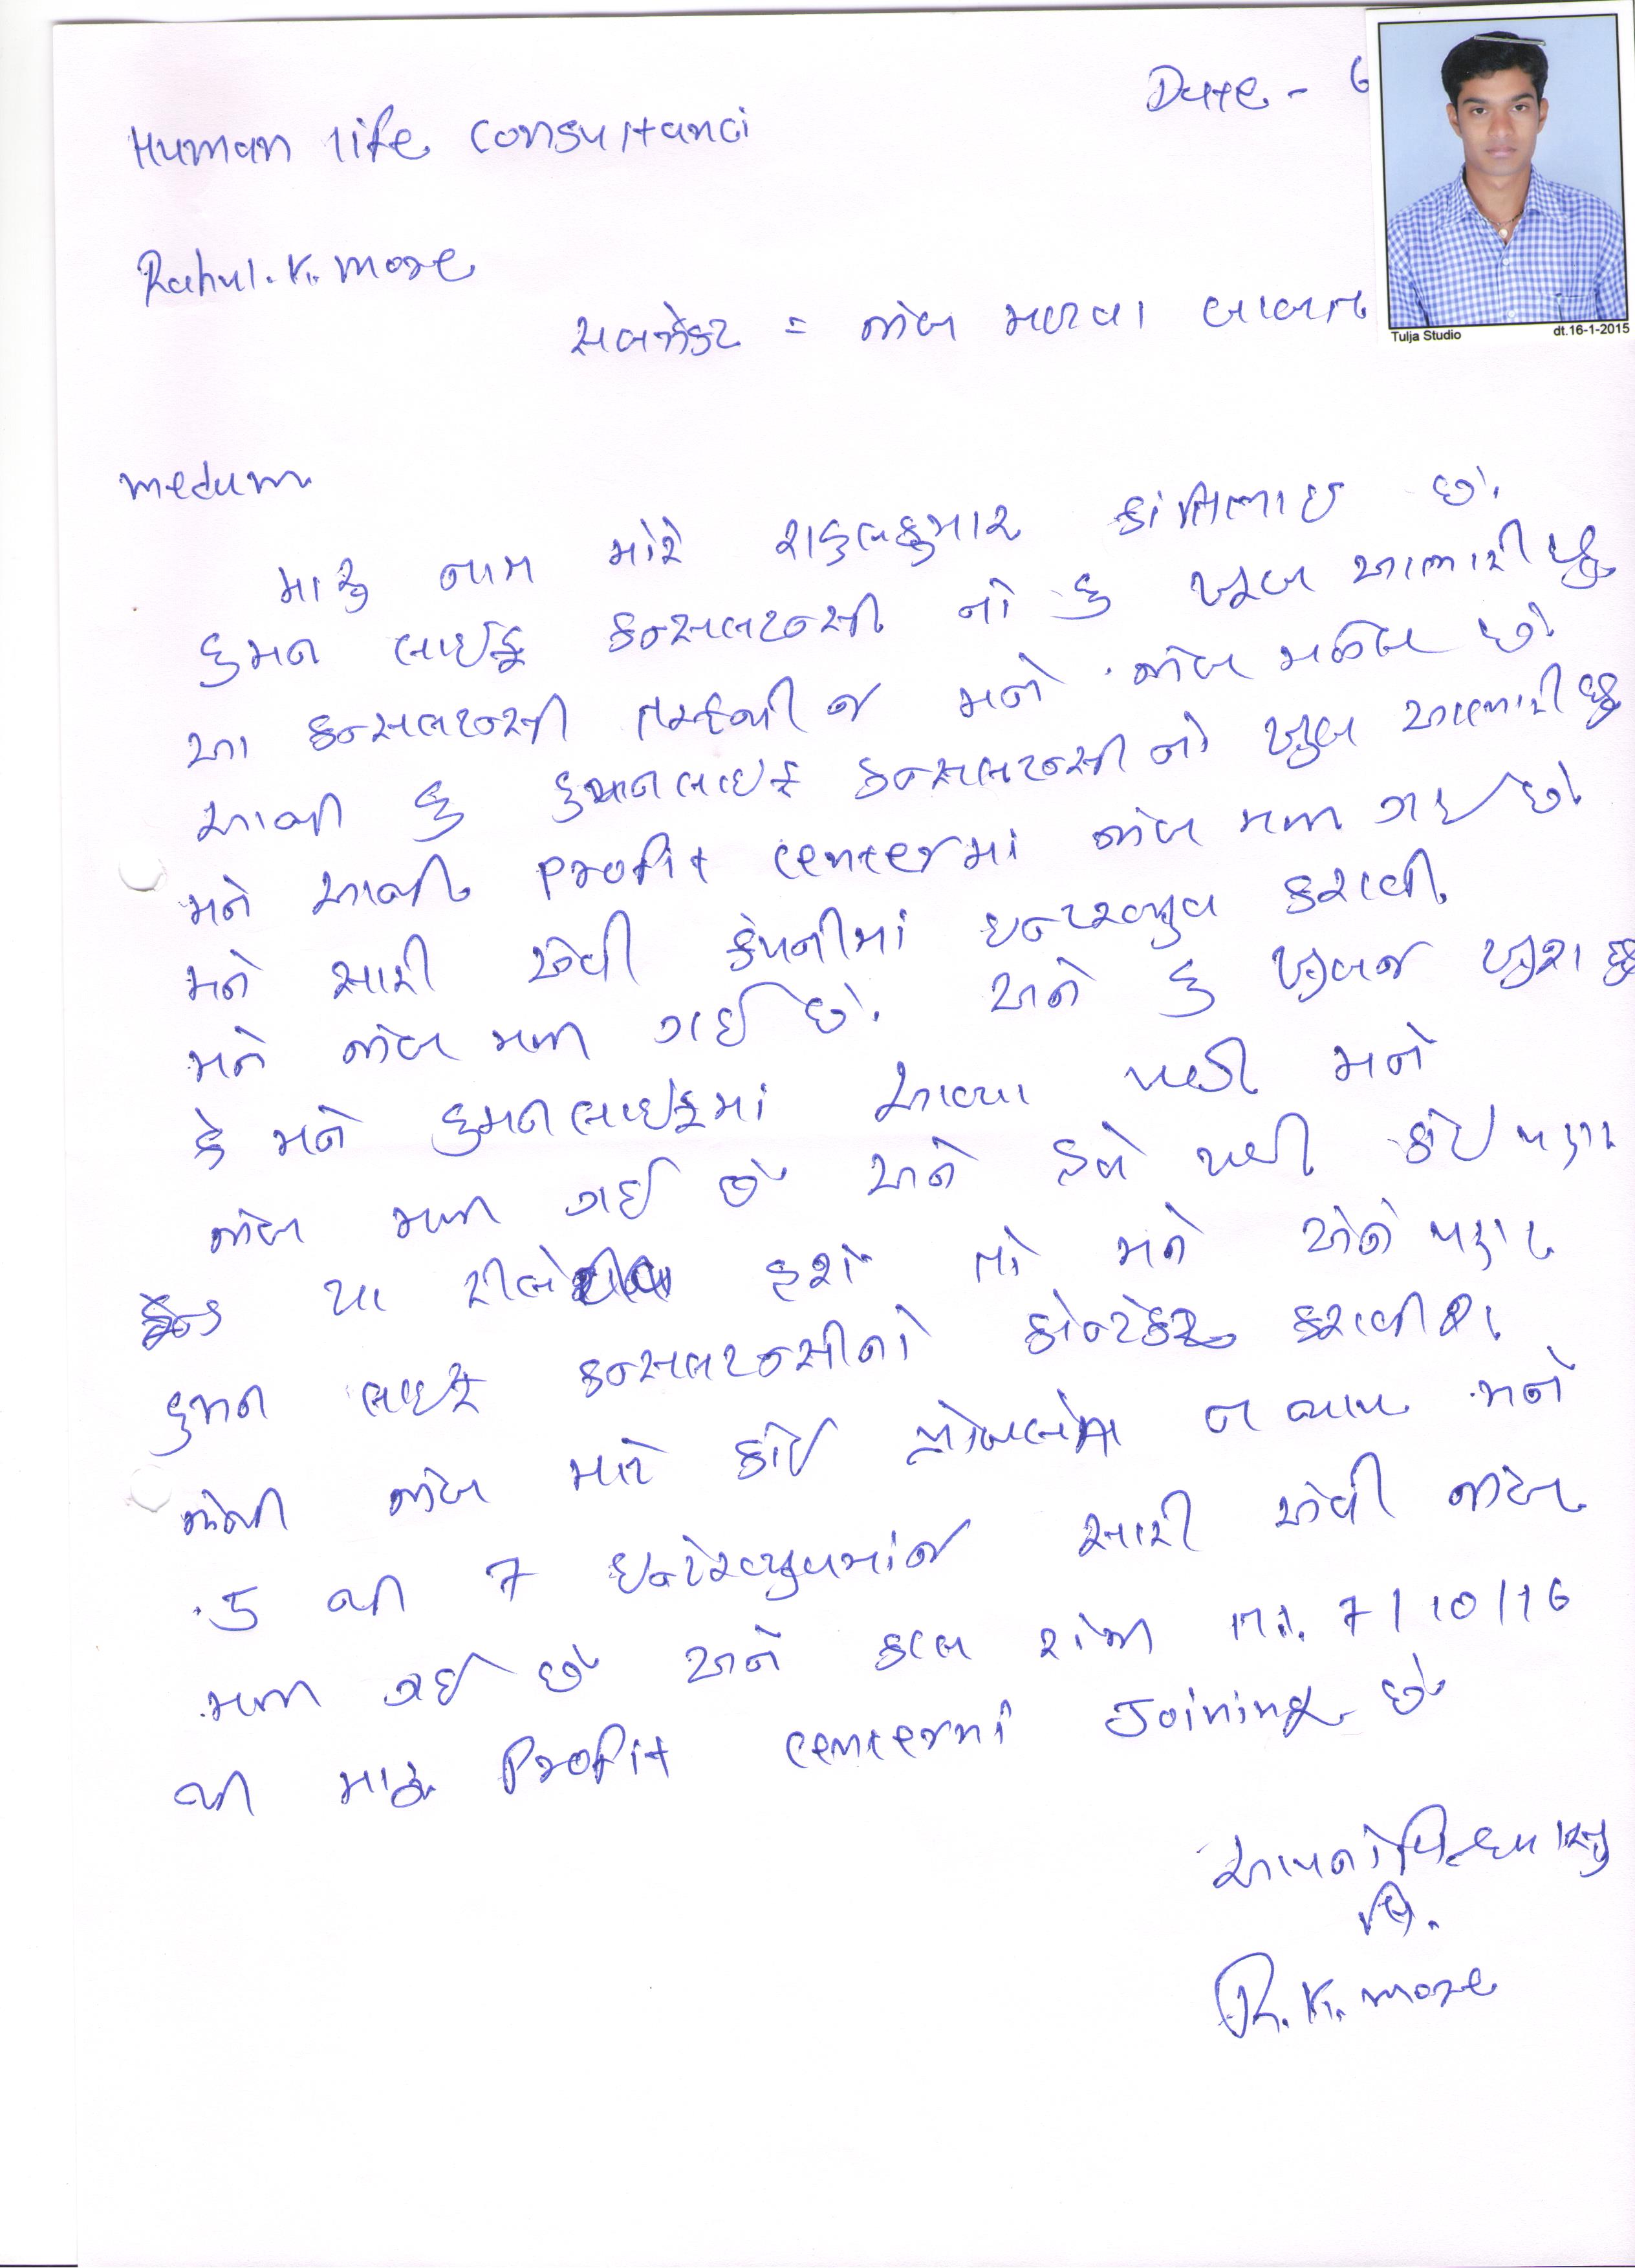 Date - 6
Human life consultanci
Rahul. K. more
સબજેકટ = જોબ મળવા બાબત
Tulja Studio dt.16-1-2015
medum
મારૂ નામ મોરે રાહુલકુમાર કાંતિલાઇ છે.
હુમન લાઇફ કન્સલટન્સી નો હુ ખૂબ આભારી છુ
આ કન્સલટન્સી તરફથી જ મને જોબ મળેલ છે
આથી હુ હુમાન લાઇફ કન્સલટન્સીનો ખુબ આભારી છુ
મને આથી Profit centerમાં જોબ મળી ગઇ છે
મને સારી એવી કંપનીમાં ઇન્ટરવ્યુવ કરાવી
મને જોબ મળી ગઈ છે. અને હુ ખુબજ ખુશ છુ
કે મને હુમન લાઇફમાં આવ્યા પછી મને
જોબ મળી ગઈ છે અને હવે પછી કોઇ પણ
યા હશે તો મને એને પણ
હુમન લાઇફ કન્સલટન્સીનો કોન્ટેક્ટ કરાવીશ.
જેથી જોબ માટે કોઈ પ્રોબલેમ ન થાય મને
5 થી 7 ઇન્ટેરવ્યુવમાંજ સારી એવી જોબ
મળી ગઈ છે અને કાલ રોજ તા. 7/10/16
થી મારૂ Profit centerમાં Joining છે
આપનો વિશ્વાસુ
લિ.
R. K. more